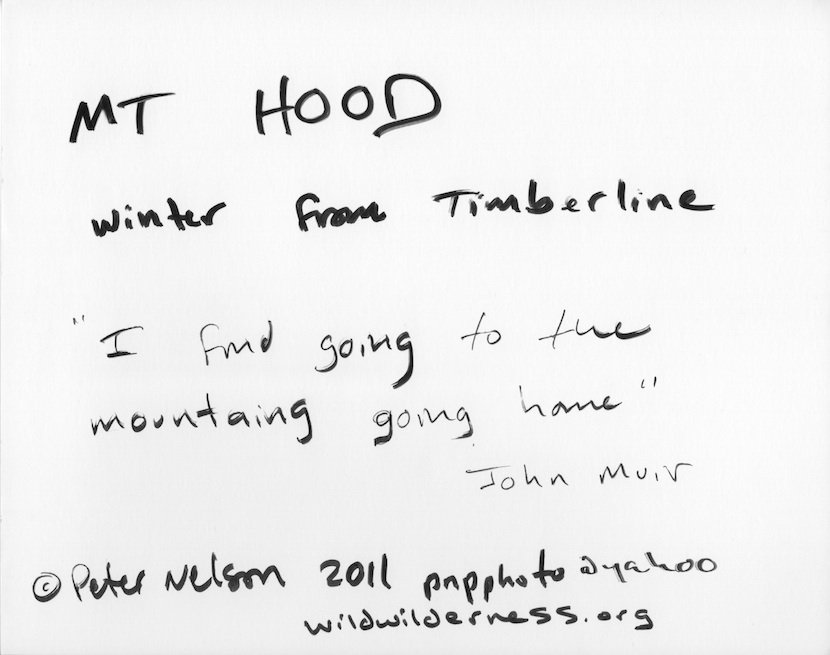 MT HOOD
winter from Timberline
"I find going to the
mountaing going home"
John Muir
© Peter Nelson 2011 pnpphoto@yahoo
wildwilderness.org